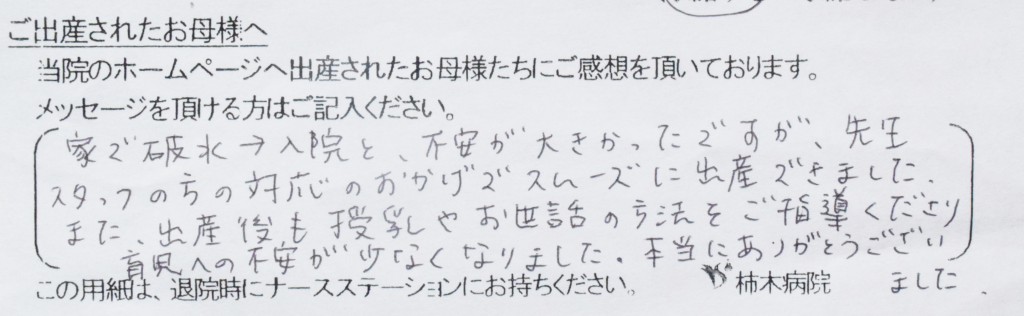 ご出産されたお母様へ
当院のホームページへ出産されたお母様たちにご感想を頂いております。
メッセージを頂ける方はご記入ください。
家で破水→入院と、不安が大きかったですが、先生
スタッフの方の対応のおかげでスムーズに出産できました。
また、出産後も授乳やお世話の方法をご指導くださり
育児への不安が少なくなりました。本当にありがとうござい
ました。
この用紙は、退院時にナースステーションにお持ちください。
柿木病院